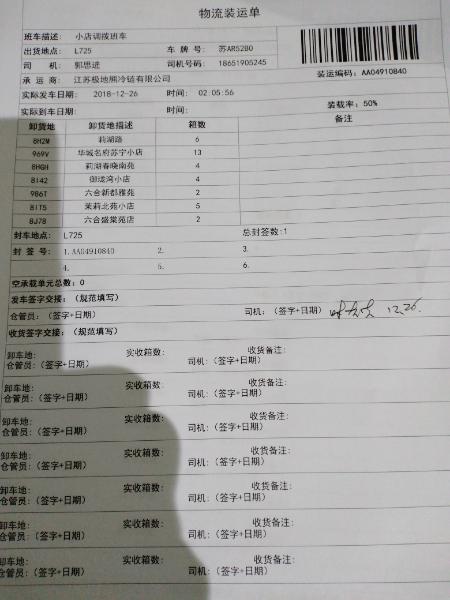 物流装运单
班车描述: 小店调拨班车
出货地点: L725 车 牌 号: 苏AR52B0
司 机: 郭思进 司机号码: 18651905245
承 运 商: 江苏极地熊冷链有限公司 装运编码: AA04910840
实际发车日期: 2018-12-26 时间: 02:05:56
实际到车日期: 时间: 装载率: 50%
卸货地 卸货地描述 箱数 备注
8H2M 莉湖路 6
969V 华城名府苏宁小店 13
8HGH 莉湖春晓南苑 4
8I42 御珑湾小店 4
986T 六合新都雅苑 2
8IT5 茉莉北苑小店 5
8J78 六合盛棠苑店 2
封车地点: L725 总封签数:1
封 签 号: 1.AA04910840 2. 3.
4. 5. 6.
空承载单元总数: 0
发车签字交接: (规范填写)
仓管员: (签字+日期) 司机: (签字+日期) 12.26.
收货签字交接: (规范填写)
卸车地: 实收箱数: 收货备注:
仓管员: (签字+日期) 司机: (签字+日期)
卸车地: 实收箱数: 收货备注:
仓管员: (签字+日期) 司机: (签字+日期)
卸车地: 实收箱数: 收货备注:
仓管员: (签字+日期) 司机: (签字+日期)
卸车地: 实收箱数: 收货备注:
仓管员: (签字+日期) 司机: (签字+日期)
卸车地: 实收箱数: 收货备注:
仓管员: (签字+日期) 司机: (签字+日期)
卸车地: 实收箱数: 收货备注:
仓管员: (签字+日期) 司机: (签字+日期)
卸车地: 实收箱数: 收货备注:
仓管员: (签字+日期) 司机: (签字+日期)